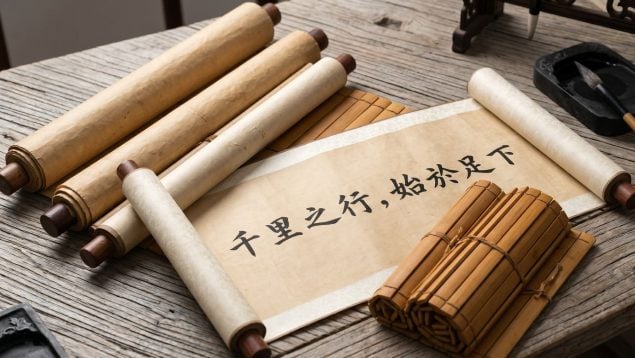 千里之行，始於足下